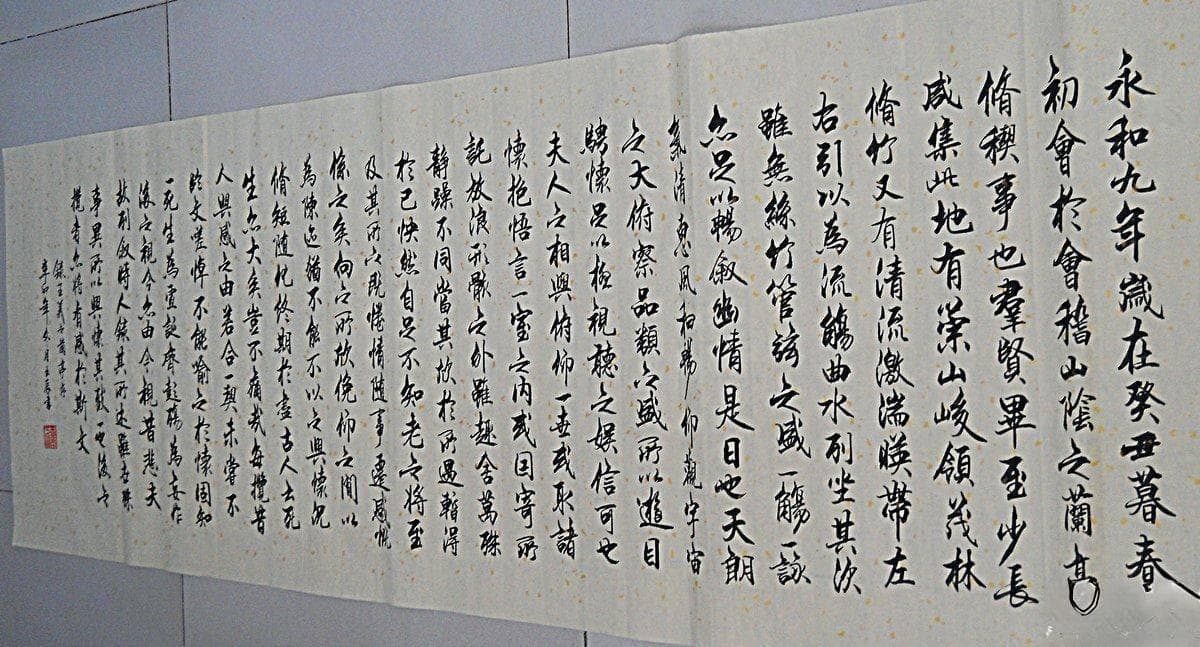 永和九年歲在癸丑暮春
初會於會稽山陰之蘭亭
脩稧事也羣賢畢至少長
咸集此地有崇山峻領茂林
脩竹又有清流激湍暎帶左
右引以為流觴曲水列坐其次
雖無絲竹管弦之盛一觴一詠
亦足以暢敘幽情是日也天朗
氣清惠風和暢仰觀宇宙
之大俯察品類之盛所以遊目
騁懷足以極視聽之娛信可也
夫人之相與俯仰一世或取諸
懷抱悟言一室之內或因寄所
託放浪形骸之外雖趣舍萬殊
靜躁不同當其欣於所遇暫得
於己快然自足不知老之將至
及其所之既惓情隨事遷感慨
係之矣向之所欣俛仰之間以
為陳迹猶不能不以之興懷況
脩短隨化終期於盡古人云死
生亦大矣豈不痛哉每攬昔
人興感之由若合一契未嘗不
臨文嗟悼不能喻之於懷固知
一死生為虛誕齊彭殤為妄作
後之視今亦由今視昔悲夫
故列敘時人錄其所述雖世殊
事異所以興懷其致一也後之
攬者亦將有感於斯文
錄王羲之蘭亭序
辛卯年